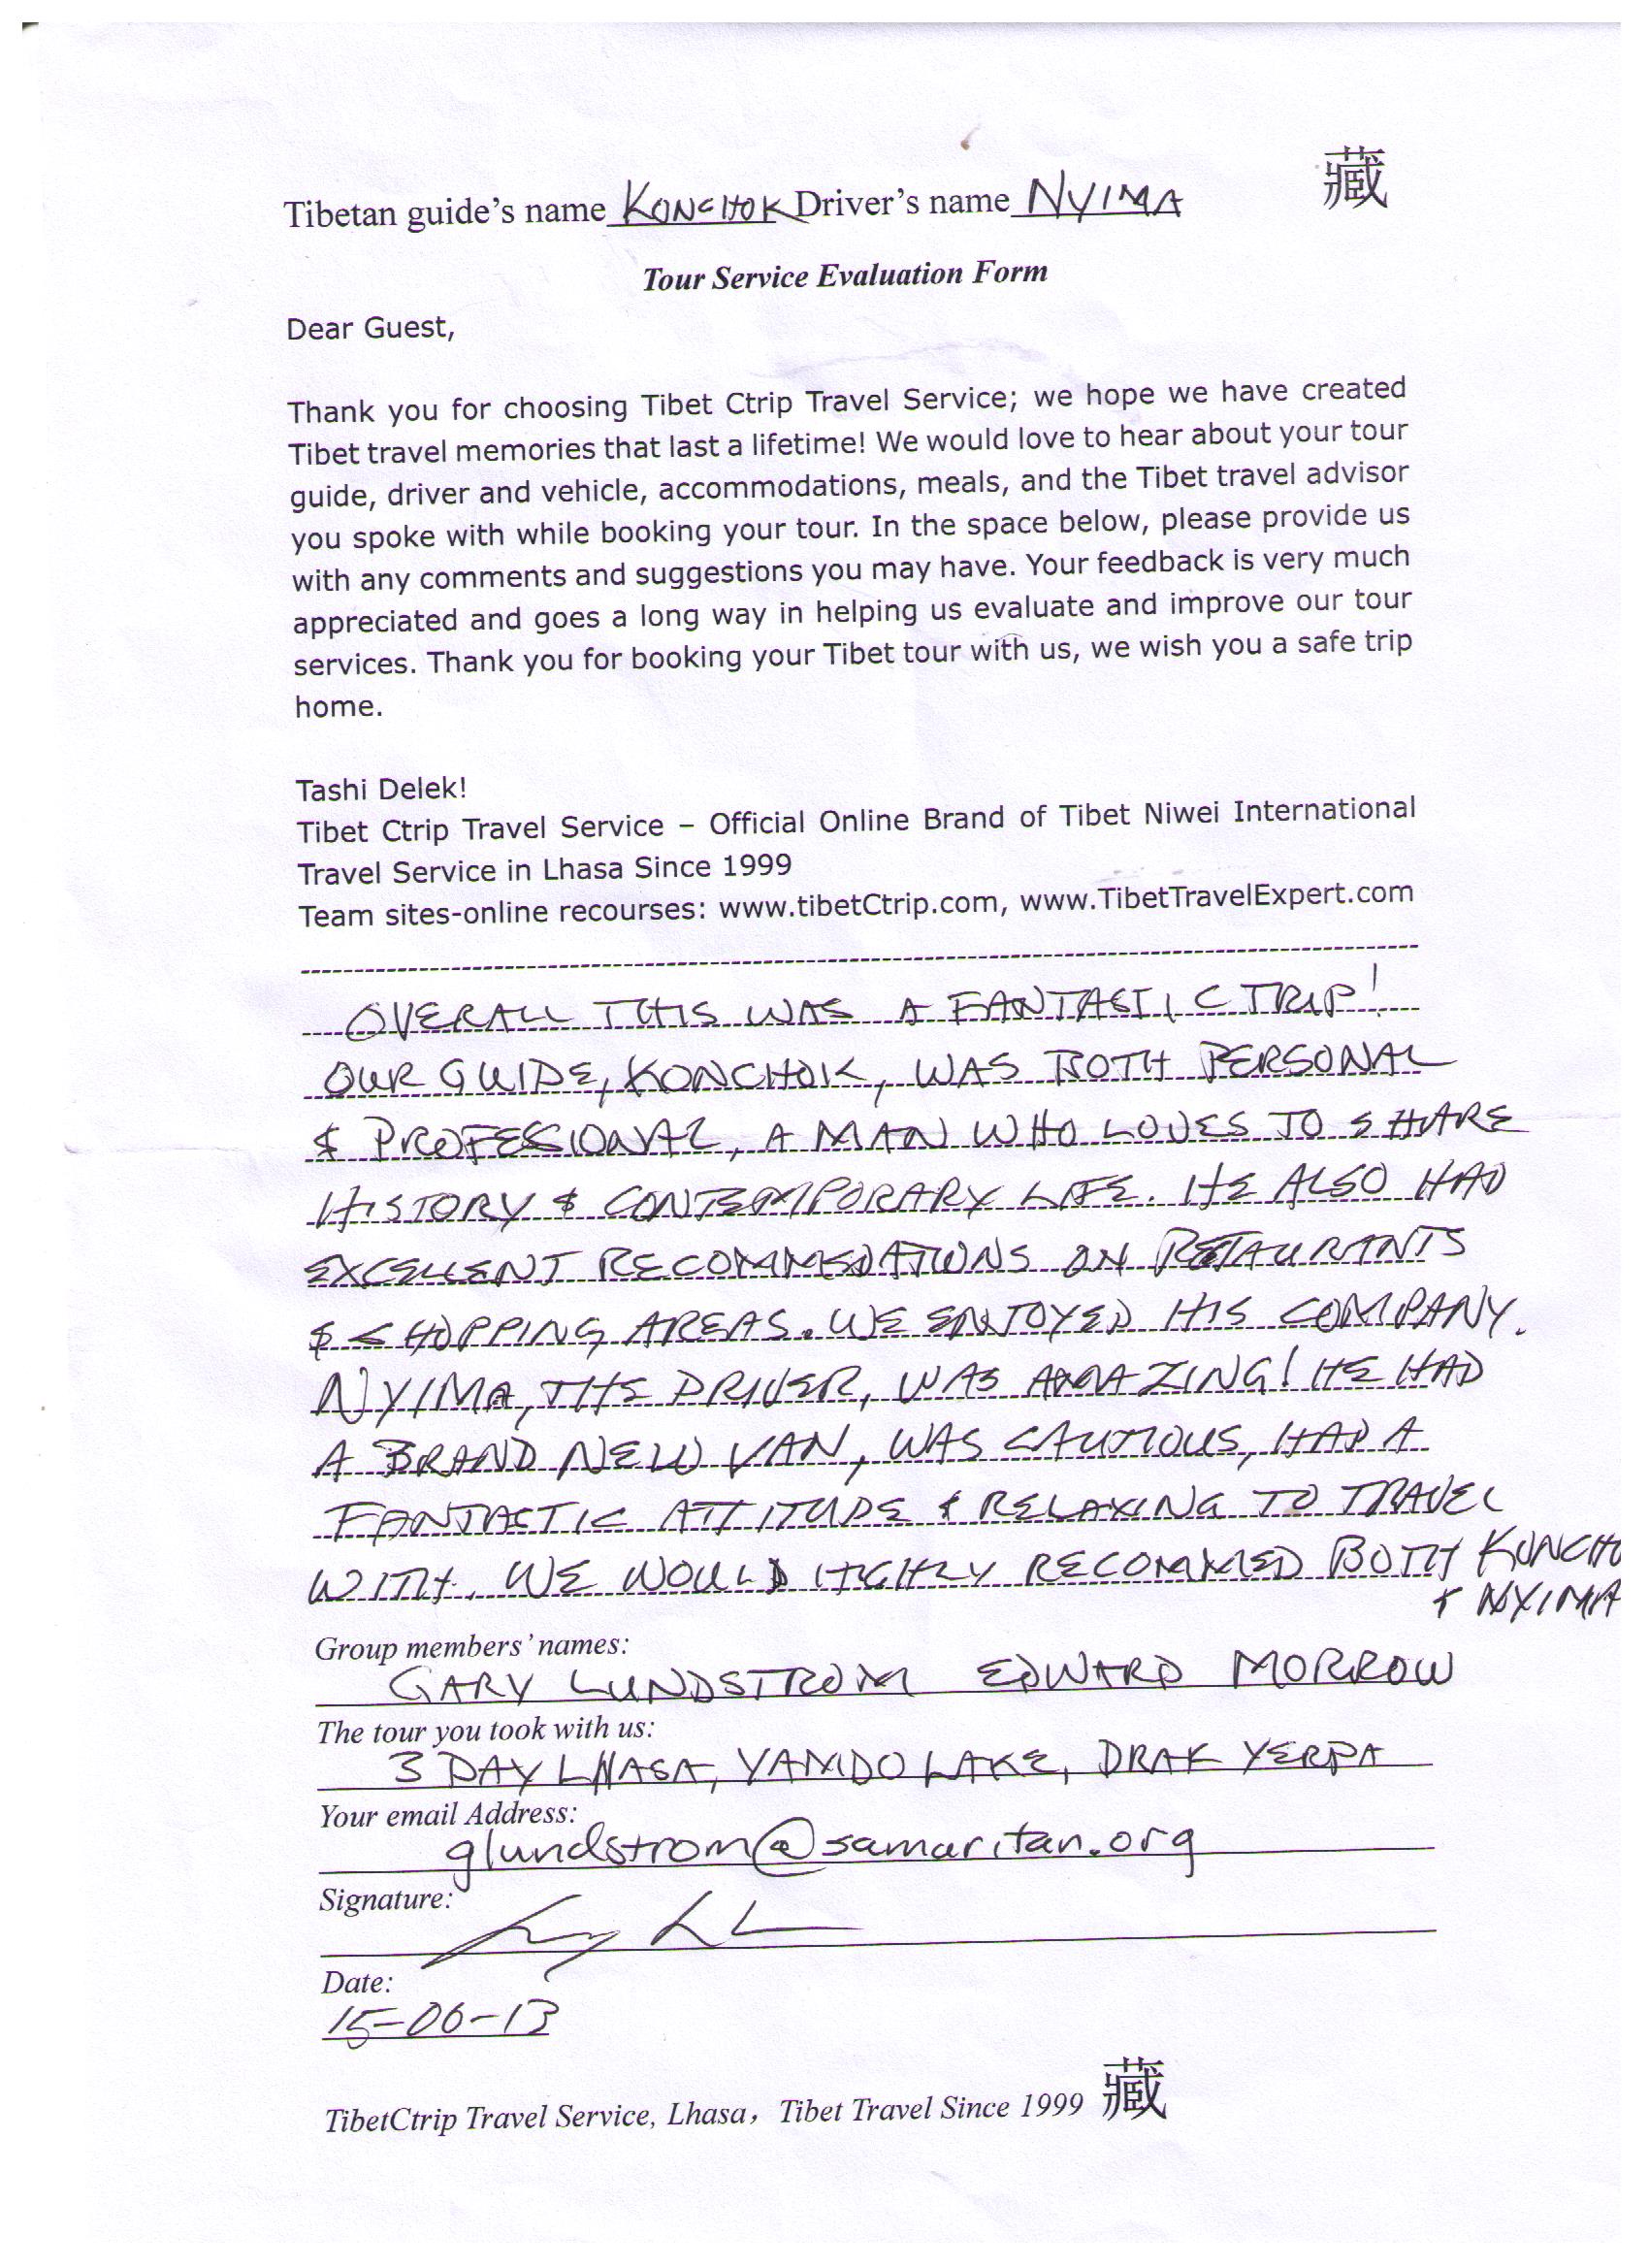 Tibetan guide's name KONCHOK Driver's name NYIMA 藏
Tour Service Evaluation Form
Dear Guest,
Thank you for choosing Tibet Ctrip Travel Service; we hope we have created
Tibet travel memories that last a lifetime! We would love to hear about your tour
guide, driver and vehicle, accommodations, meals, and the Tibet travel advisor
you spoke with while booking your tour. In the space below, please provide us
with any comments and suggestions you may have. Your feedback is very much
appreciated and goes a long way in helping us evaluate and improve our tour
services. Thank you for booking your Tibet tour with us, we wish you a safe trip
home.
Tashi Delek!
Tibet Ctrip Travel Service – Official Online Brand of Tibet Niwei International
Travel Service in Lhasa Since 1999
Team sites-online recourses: www.tibetCtrip.com, www.TibetTravelExpert.com
OVERALL THIS WAS A FANTASTIC TRIP!
OUR GUIDE, KONCHOK, WAS BOTH PERSONAL
& PROFESSIONAL, A MAN WHO LOVES TO SHARE
HISTORY & CONTEMPORARY LIFE. HE ALSO HAD
EXCELLENT RECOMMEDATIONS ON RETAURANTS
& SHOPPING AREAS. WE ENJOYED HIS COMPANY.
NYIMA, THE DRIVER, WAS AMAZING! HE HAD
A BRAND NEW VAN, WAS CAUTIOUS, HAD A
FANTASTIC ATTITUDE & RELAXING TO TRAVEL
WITH. WE WOULD HIGHLY RECOMMED BOTH KONCHO
& NYIMA
Group members' names:
GARY LUNDSTROM EDWARD MORROW
The tour you took with us:
3 DAY LHASA, YAMDO LAKE, DRAK YERPA
Your email Address:
glundstrom@samaritan.org
Signature:
Date:
15-06-13
TibetCtrip Travel Service, Lhasa， Tibet Travel Since 1999 藏